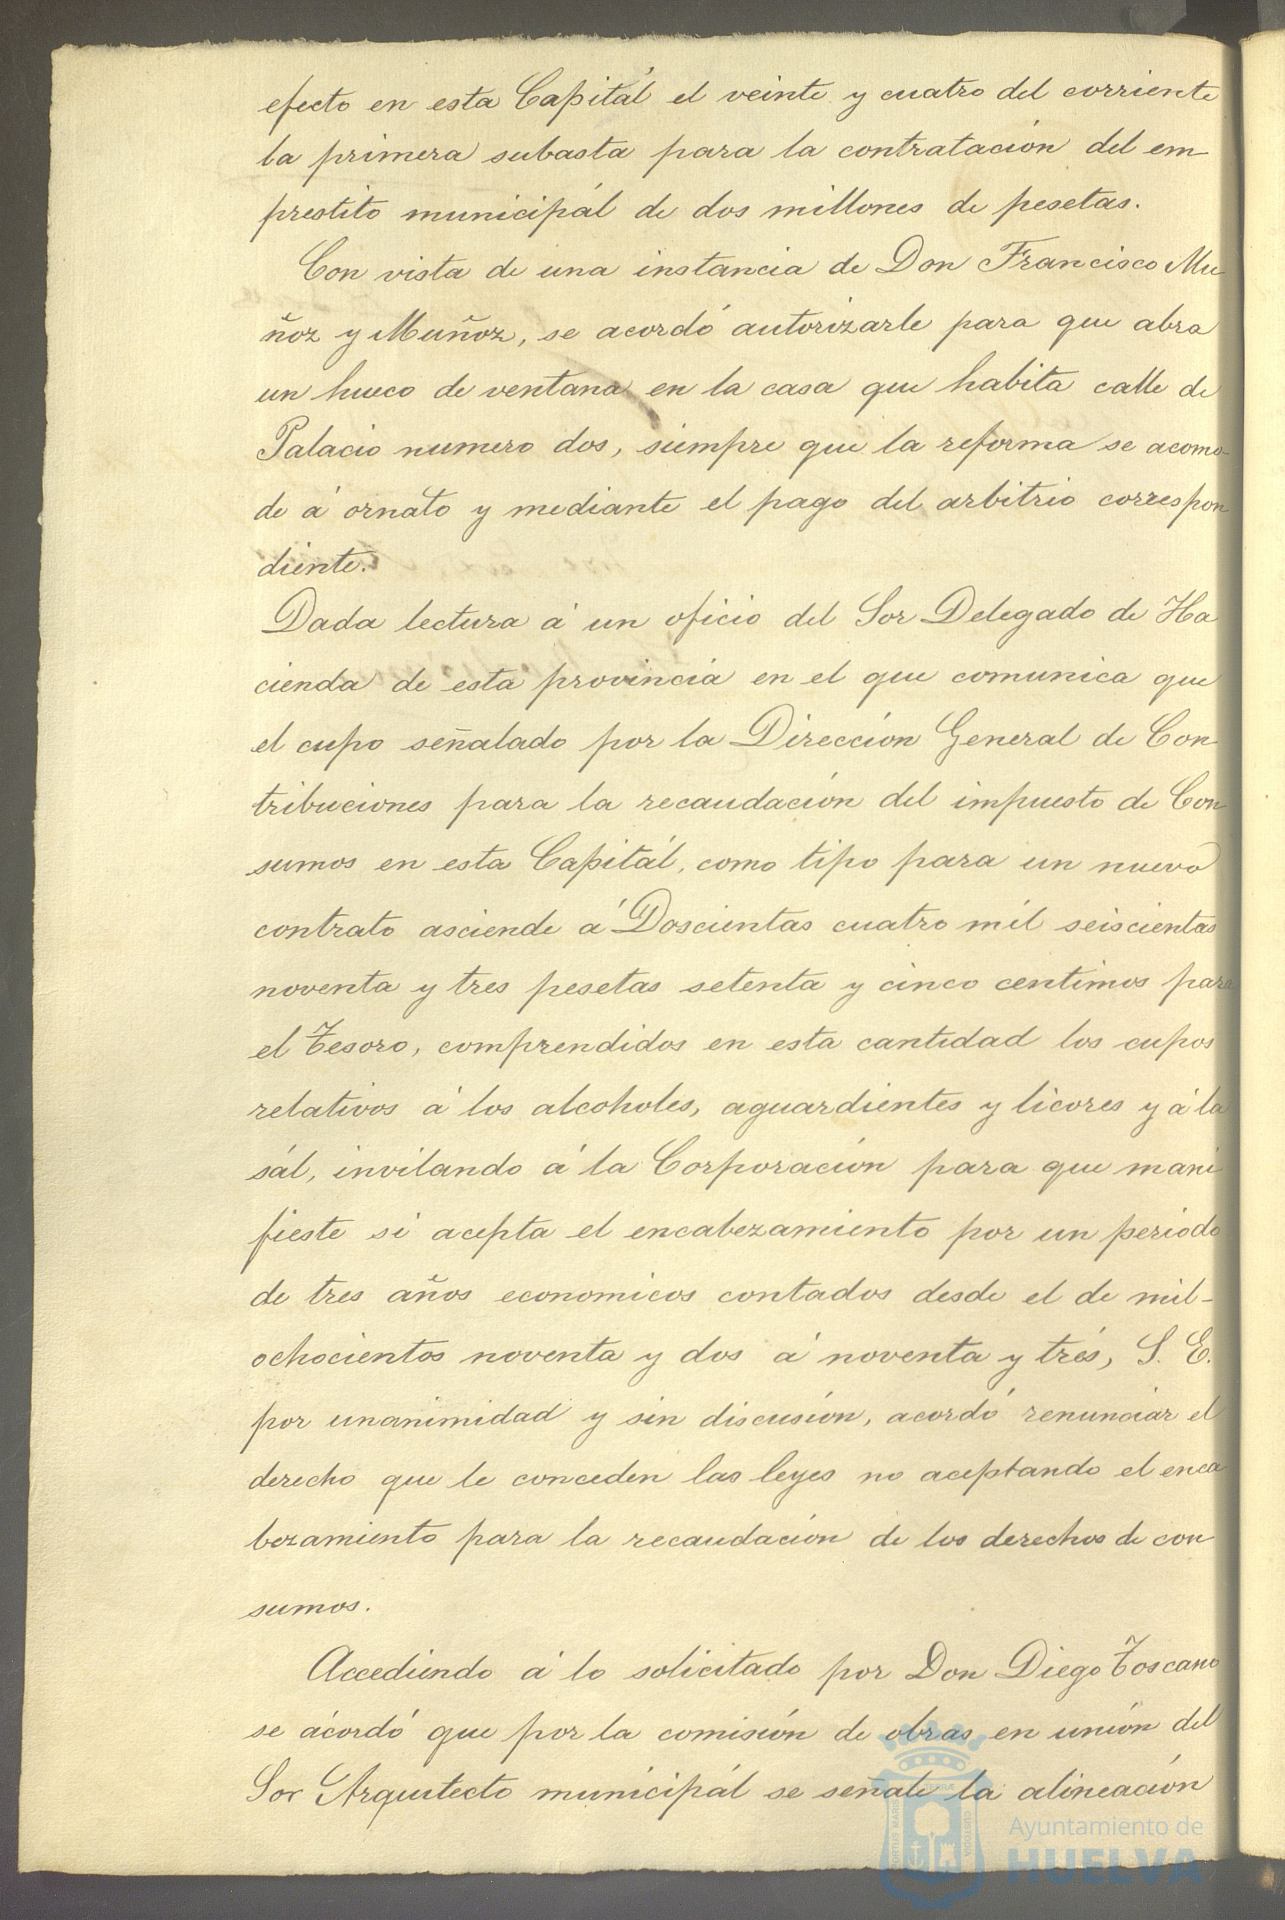 efecto en esta Capitál el veinte y cuatro del corriente
la primera subasta para la contratación del em-
prestito municipál de dos millones de pesetas.
Con vista de una instancia de Don Francisco Mu
ñoz y Muñoz, se acordó autorizarle para que abra
un hueco de ventana en la casa que habita calle de
Palacio numero dos, siempre que la reforma se acomo-
de á ornato y mediante el pago del arbitrio correspon
diente.
Dada lectura á un oficio del Sor Delegado de Ha
cienda de esta provincia en el que comunica que
el cupo señalado por la Dirección General de Con
tribuciones para la recaudación del impuesto de Con
sumos en esta Capitál, como tipo para un nuevo
contrato asciende á Doscientas cuatro mil seiscientas
noventa y tres pesetas setenta y cinco centimos para
el Tesoro, comprendidos en esta cantidad los cupos
relativos á los alcoholes, aguardientes y licores y á la
sál, invitando á la Corporación para que mani
fieste si acepta el encabezamiento por un periodo
de tres años economicos contados desde el de mil-
ochocientos noventa y dos á noventa y trés, S. E.
por unanimidad y sin discusión, acordó renunciar el
derecho que le conceden las leyes no aceptando el enca
bezamiento para la recaudación de los derechos de con
sumos.
Accediendo á lo solicitado por Don Diego Toscano
se acordó que por la comisión de obras en unión del
Sor Arquitecto municipál se señale la alineación
Ayuntamiento de
HUELVA